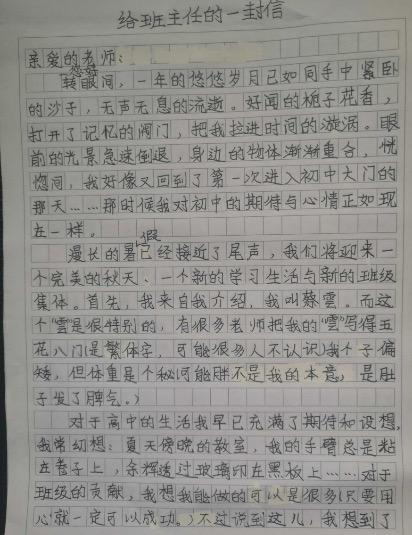 给班主任的一封信
亲爱的老师：
您好
转眼间，一年的悠悠岁月已如同手中紧卧
的沙子，无声无息的流逝。好闻的栀子花香，
打开了记忆的阀门，把我拉进时间的漩涡。眼
前的光景急速倒退，身边的物体渐渐重合，恍
惚间，我好像又回到了第一次进入初中大门的
那天……那时候我对初中的期待与心情正如现
在一样。
漫长的暑假已经接近了尾声，我们将迎来一
个完美的秋天、一个新的学习生活与新的班级
集体。首先，我来自我介绍，我叫蔡雲。而这
个“雲”是很特别的，有很多老师把我的“雲”写得五
花八门(是繁体字，可能很多人不认识)我个子偏
矮，但体重是个秘(可能胖不是我的本意，是肚
子发了脾气。)
对于高中的生活我早已充满了期待和设想，
我常幻想：夏天傍晚的教室，我的手臂总是粘
在卷子上，余辉透过玻璃印在黑板上……对于
班级的贡献，我想我能做的可以是很多(只要用
心就一定可以成功。)不过说到这儿，我想到了